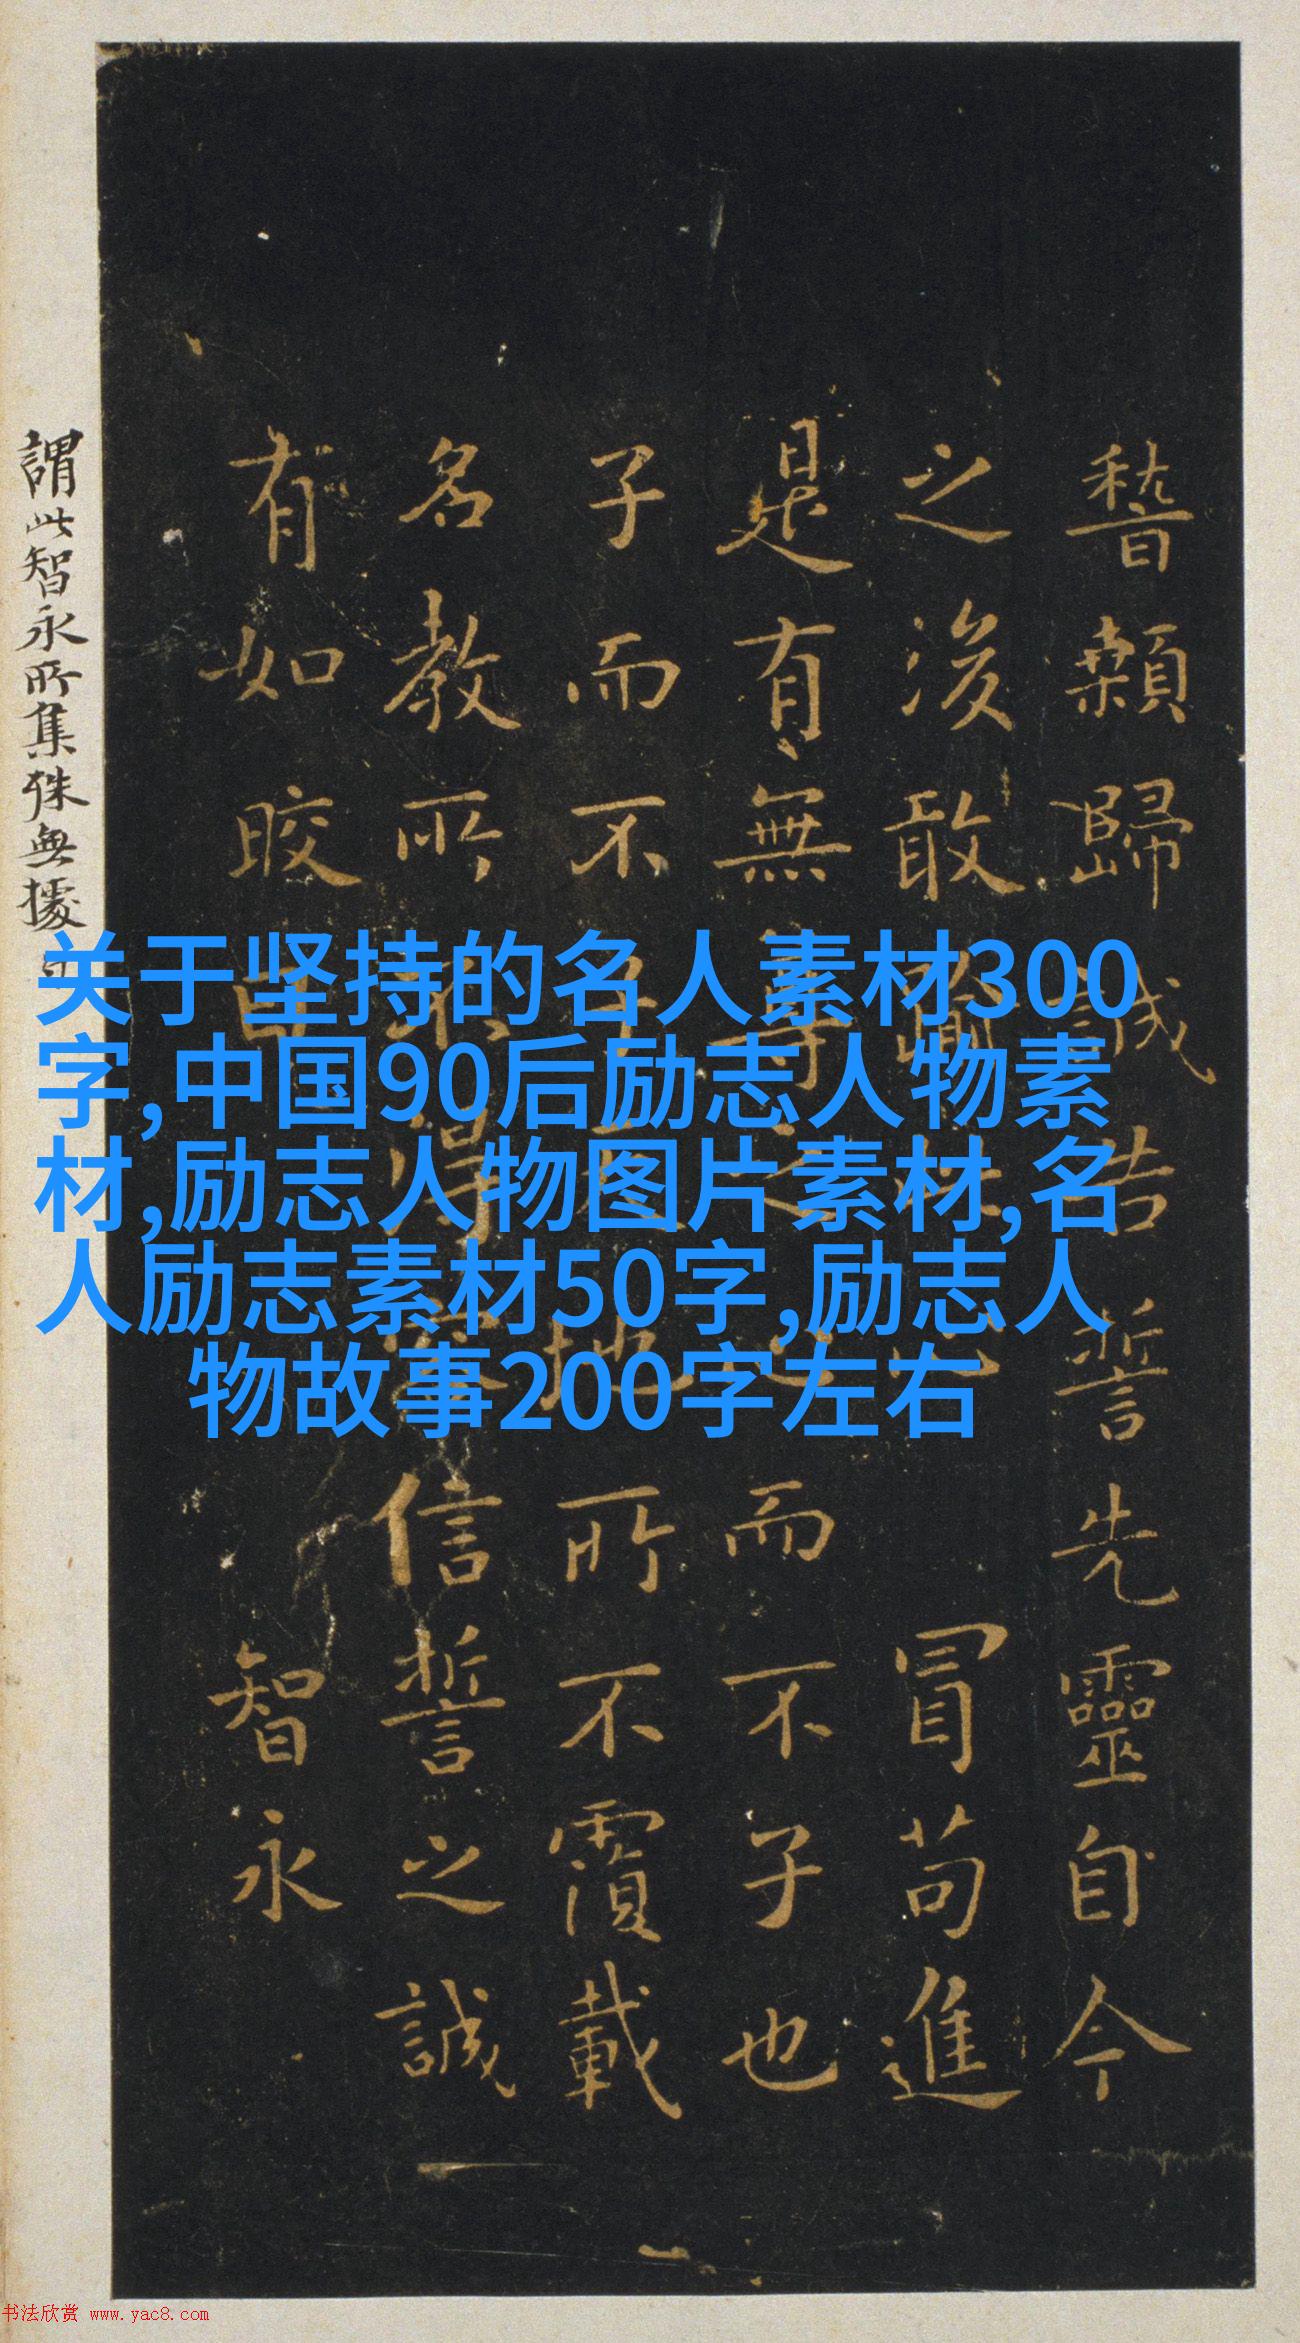 稽顙歸誠告誓先靈自今
之後敢渝此心冒苟進
是有無尊之心而不子也
子而不子天地所不覆載
名教所不得容信誓之誠
有如皎日 智永
謂此智永所集殊無據
关于坚持的名人素材300
字,中国90后励志人物素
材,励志人物图片素材,名
人励志素材50字,励志人
物故事200字左右
书法欣赏 www.yac8.com